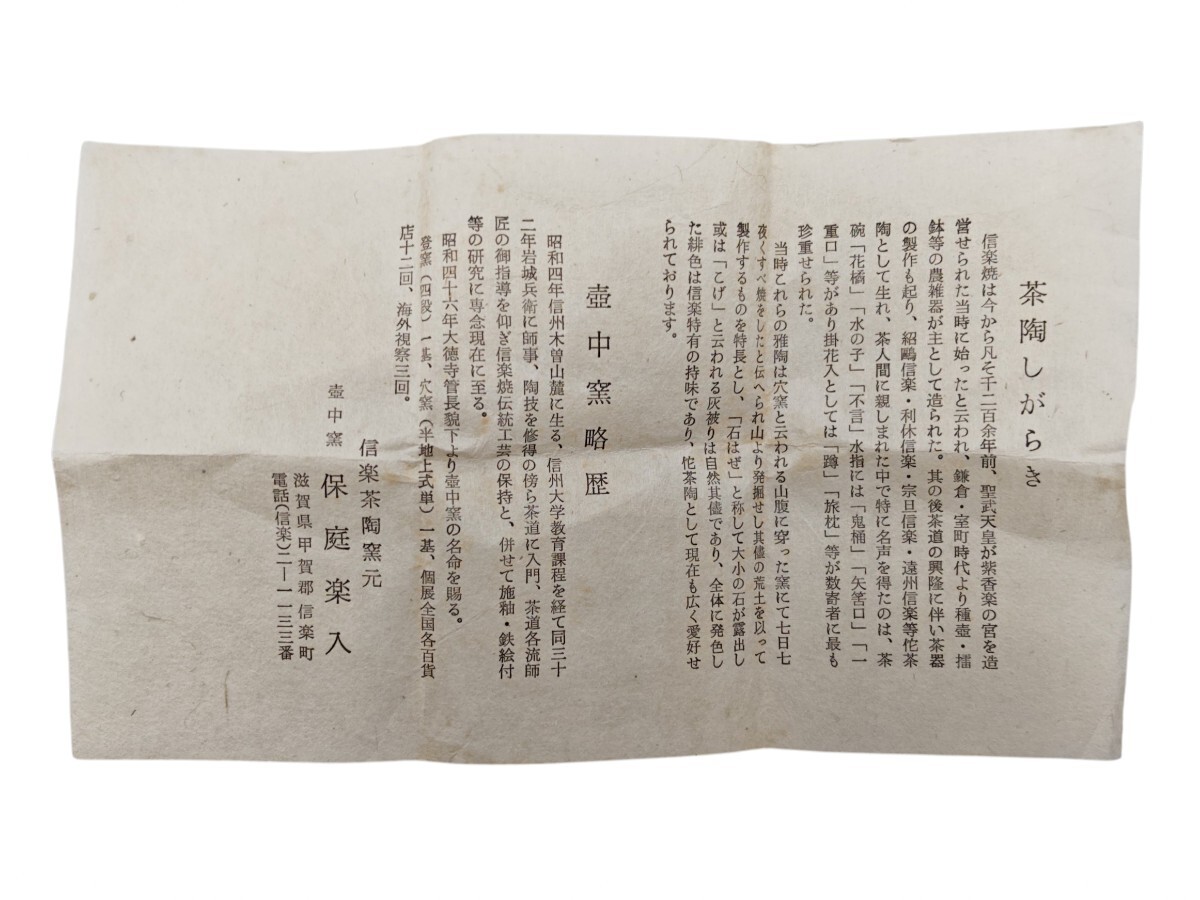 茶陶しがらき
信楽焼は今から凡そ千二百余年前、聖武天皇が紫香楽の宮を造
営せられた当時に始ったと云われ、鎌倉・室町時代より種壺・擂
鉢等の農雑器が主として造られた。其の後茶道の興隆に伴い茶器
の製作も起り、紹鷗信楽・利休信楽・宗旦信楽・遠州信楽等佗茶
陶として生れ、茶人間に親しまれた中で特に名声を得たのは、茶
碗「花橘」「水の子」「不言」水指には「鬼桶」「矢筈口」「一
重口」等があり掛花入としては「蹲」「旅枕」等が数寄者に最も
珍重せられた。
当時これらの雅陶は穴窯と云われる山腹に穿った窯にて七日七
夜くすべ焼をしたと伝へられ山より発掘せし其儘の荒土を以って
製作するものを特長とし、「石はぜ」と称して大小の石が露出し
或は「こげ」と云われる灰被りは自然其儘であり、全体に発色し
た緋色は信楽特有の持味であり、佗茶陶として現在も広く愛好せ
られております。
壺中窯略歴
昭和四年信州木曽山麓に生る、信州大学教育課程を経て同三十
二年岩城兵衛に師事、陶技を修得の傍ら茶道に入門、茶道各流師
匠の御指導を仰ぎ信楽焼伝統工芸の保持と、併せて施釉・鉄絵付
等の研究に専念現在に至る。
昭和四十六年大徳寺管長貌下より壺中窯の名命を賜る。
登窯(四段)一基、穴窯(半地上式単)一基、個展全国各百貨
店十二回、海外視察三回。
信楽茶陶窯元
壺中窯 保庭楽入
滋賀県甲賀郡信楽町
電話(信楽)二―一一三三番